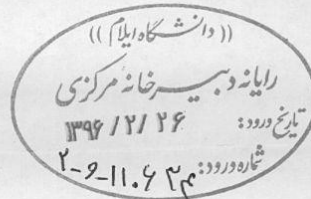 (( دانشگاه ایلام ))
رایانه دبیرخانه مرکزی
تاریخ ورود: ۱۳۹۶/۲/۲۶
شماره ورود: